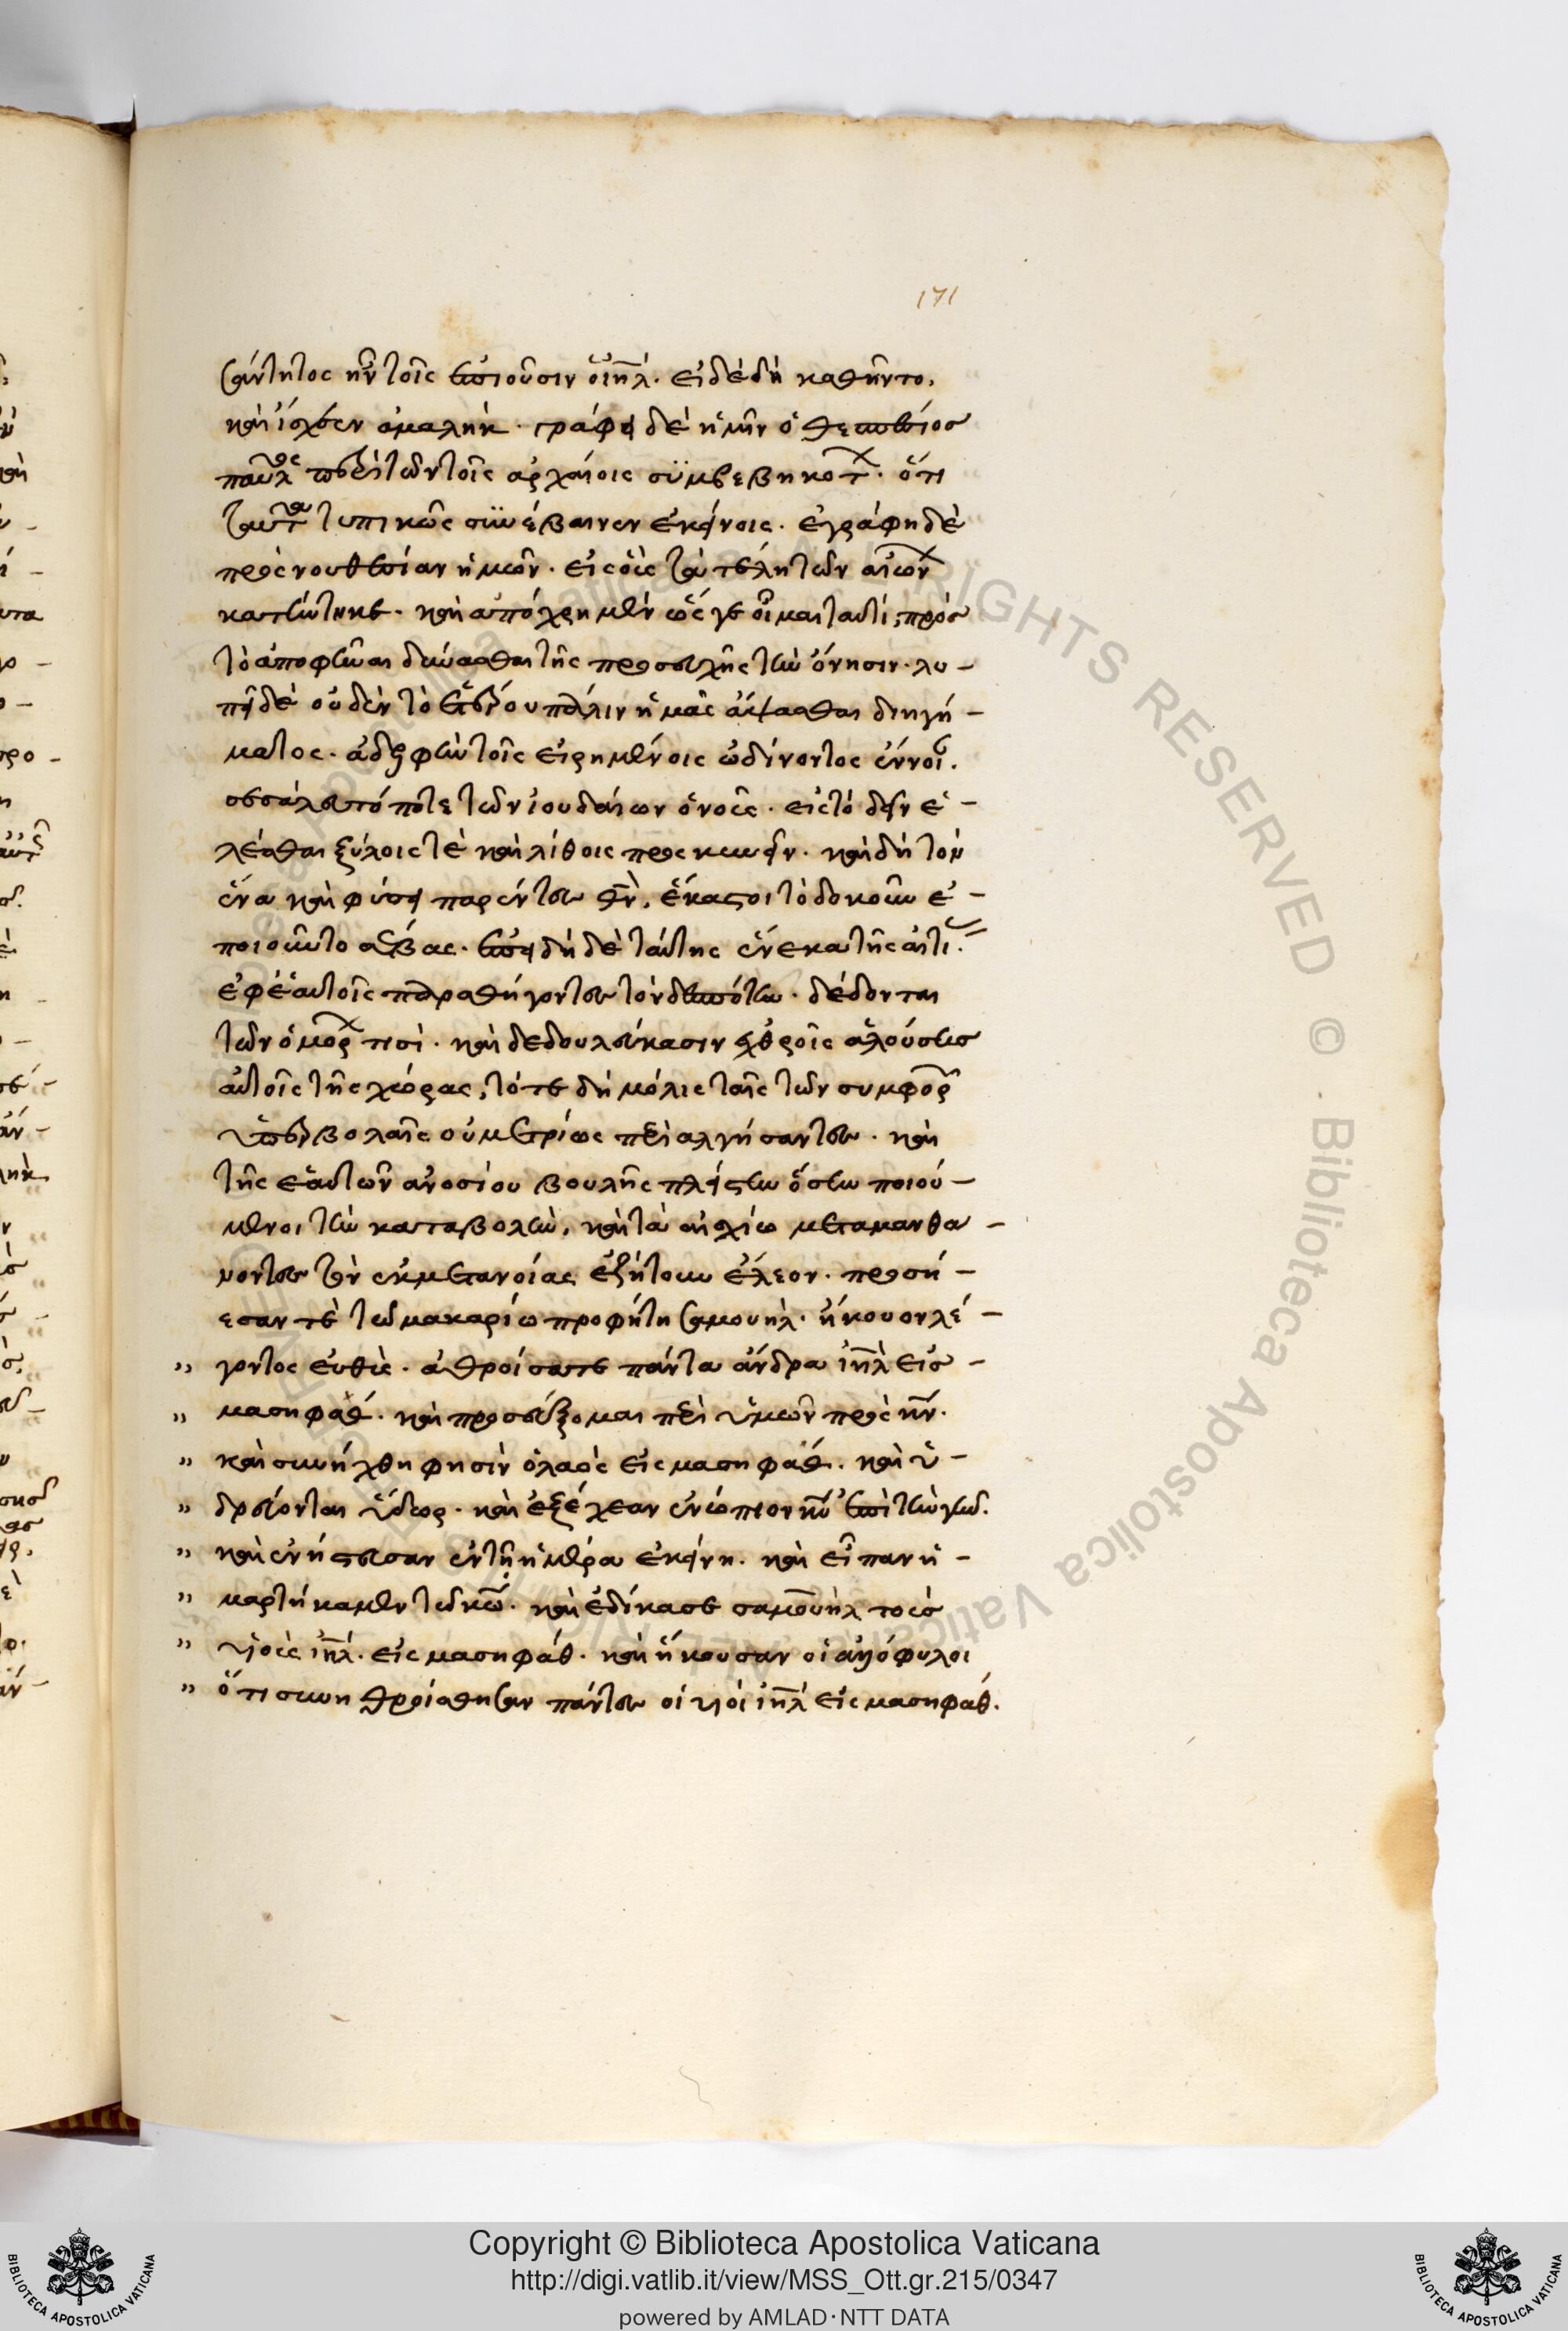 171
σάντητος ἦν τοῖς ἐπιοῦσιν ὁ ιηλ. εἰ δὲ δὴ καθῆντο,
καὶ ἴσχυεν ἀμαλήκ. γράφει δὲ ἡμῖν ὁ θεσπέσιος
παῦλος περὶ τῶν τοῖς ἀρχαίοις συμβεβηκότ. ὅτι
ταῦτα τυπικῶς συνέβαινεν ἐκείνοις. ἐγράφη δὲ
πρὸς νουθεσίαν ἡμῶν. εἰς οὓς τὰ τέλη τῶν αἰών
κατήντηκε. καὶ ἀπόχρη μὲν ὥς γε οἶμαι ταυτί, πρὸς
τὸ ἀποφῆναι δύνασθαι τῆς προσευχῆς τὴν ὄνησιν. λυ-
πεῖ δὲ οὐδὲν τὸ ἑτέρου πάλιν ἡμᾶς ἅψασθαι διηγή-
ματος. ἀδελφὴν τοῖς εἰρημένοις ὠδίνοντος ἔννοι.
ἐσσάλευτό ποτε τῶν ἰουδαίων ὁ νοῦς. εἰς τὸ δεῖν ἑ-
λέσθαι ξύλοις τὲ καὶ λίθοις προσκυνεῖν. καὶ δὴ τὸν
ἕνα καὶ φύσει παρέντες θν, ἕκαστοι τὸ δοκοῦν ἐ-
ποιοῦντο σέβας. ἐπειδὴ δὲ ταύτης ἕνεκα τῆς αἰτί.
ἐφ' ἑαυτοῖς παραθήγοντες τὸν δεσπότην. δέδονται
τῶν ὁμόρ τισὶ. καὶ δεδουλεύκασιν ἐχθροῖς ἁλούσης
αὐτοῖς τῆς χώρας, τότε δὴ μόλις ταῖς τῶν συμφορ
ὑπερβολαῖς οὐ μετρίως περιαλγήσαντες. καὶ
τῆς ἑαυτῶν ἀνοσίου βουλῆς πλείστην ὅσην ποιού-
μενοι τὴν καταβολὴν, καὶ τὰ αἰσχίω μεταμανθά-
νοντες τὸν ἐκ μετανοίας ἐζήτουν ἔλεον. προσή-
εσαν τὲ τῷ μακαρίῳ προφήτη σαμουήλ. ἤκουον λέ-
" γοντος εὐθὺς. ἀθροίσατε πάντα ἄνδρα ιηλ εἰς
" μασηφάθ. καὶ προσεύξομαι περὶ ὑμῶν πρὸς κν.
" καὶ συνήχθη φησὶν ὁ λαὸς εἰς μασηφάθ. καὶ ὑ-
" δρεύονται ὕδωρ. καὶ ἐξέχεαν ἐνώπιον κυ ἐπὶ τὴν γῆν.
" καὶ ἐνήστευσαν ἐν τῇ ἡμέρα ἐκείνη. καὶ εἶπαν ἡ-
" μαρτήκαμεν τῷ κω. καὶ ἐδίκασε σαμουὴλ τοὺς
" υἱοὺς ιηλ. εἰς μασηφάθ. καὶ ἤκουσαν οἱ ἀλλόφυλοι
" ὅτι συνηθροίσθησαν πάντες οἱ υἱοὶ ιηλ εἰς μασηφάθ.
RIGHTS RESERVED © Biblioteca Apostolica Vaticana
Copyright © Biblioteca Apostolica Vaticana
http://digi.vatlib.it/view/MSS_Ott.gr.215/0347
powered by AMLAD·NTT DATA
BIBLIOTECA APOSTOLICA VATICANA
BIBLIOTECA APOSTOLICA VATICANA